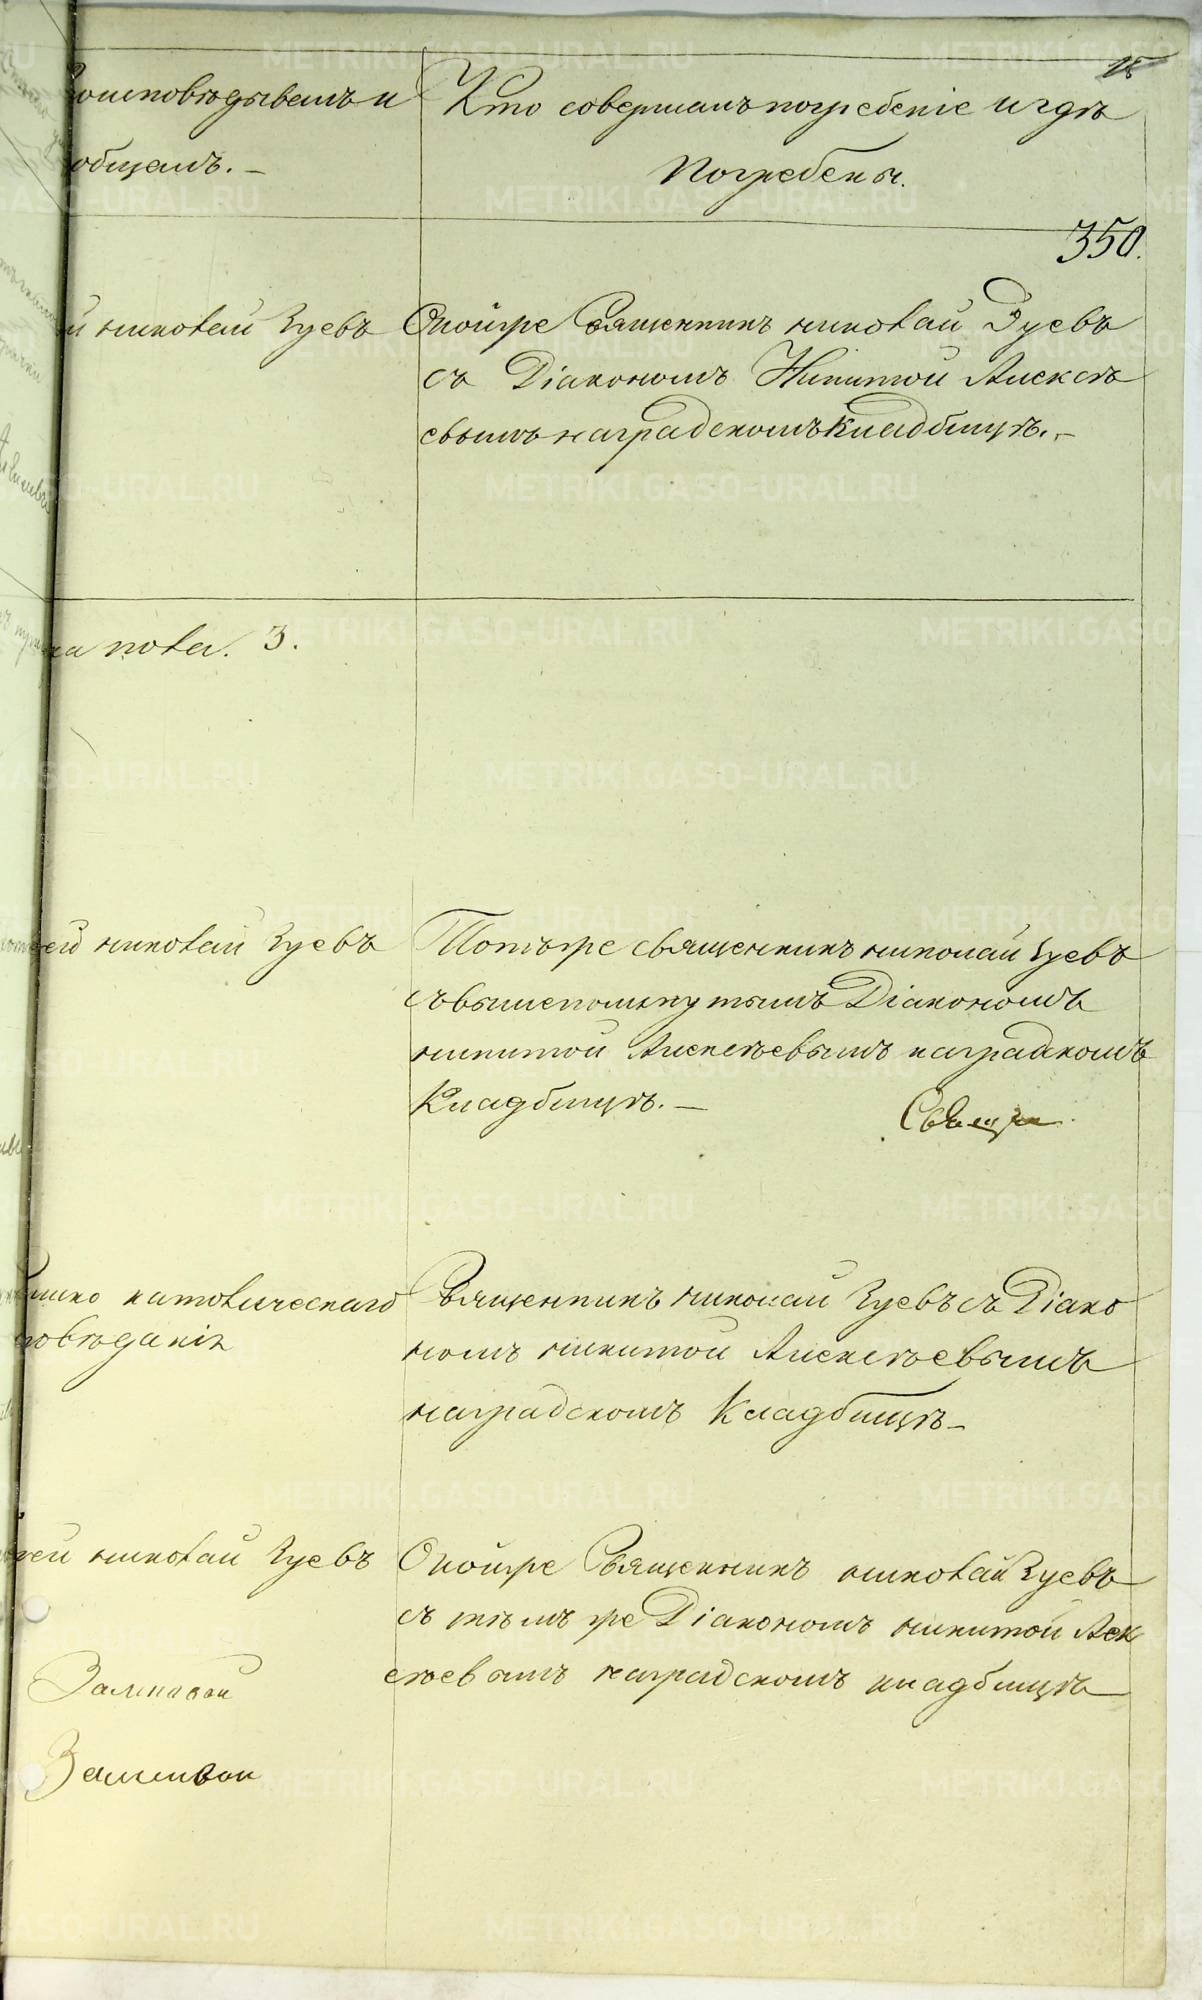 15
исповѣдывалъ и
общалъ. –
Кто совершалъ погребеніе и гдѣ
Погребены.
350.
й николай Зуевъ
Онойже Священникъ николай Зуевъ
съ Діакономъ Никитой Алексѣ
евымъ наградскомъ Кладбищѣ. –
пола. 3.
николай Зуевъ
Тотъже священникъ николай Зуевъ
свышепомянутымъ Діакономъ
никитой Алексѣевымъ наградскомъ
Кладбищѣ. –
Священ
католическаго
повѣданія
Священникъ николай Зуевъ съ Діако
номъ никитой Алексѣевымъ
наградскомъ Кладбищѣ –
николай Зуевъ
Онойже Священникъ николай Зуевъ
съ тѣмъ же Діакономъ никитой Алек
сѣевымъ наградскомъ кладбищѣ